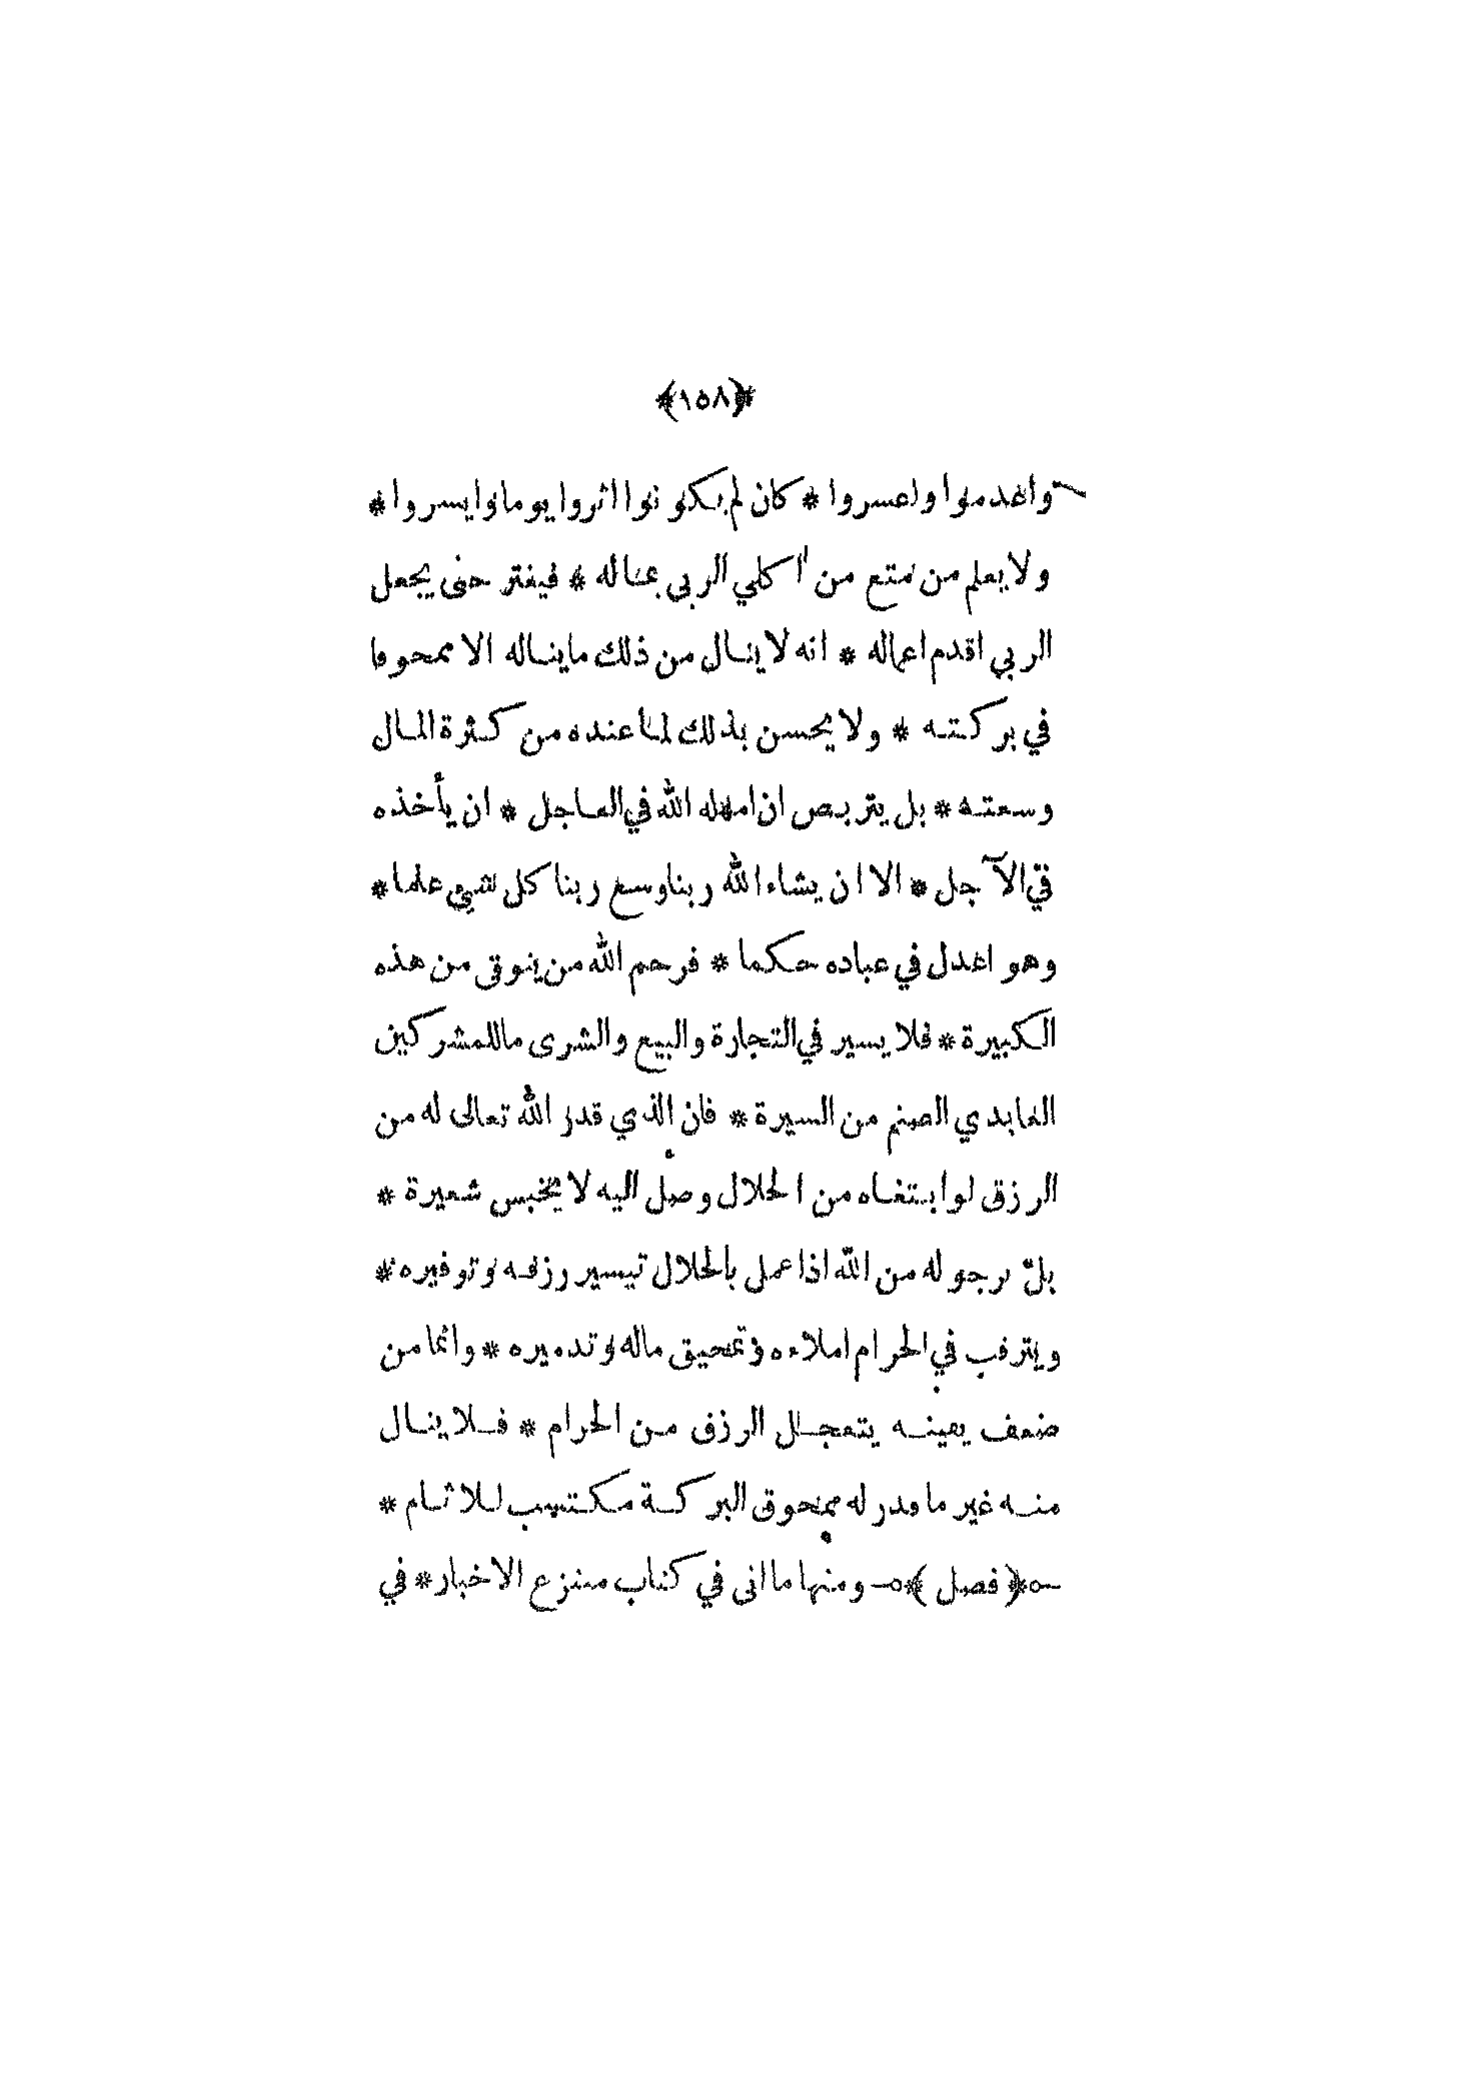 ﴿١٥٨﴾
واعدموا واعسروا * كان لم يكونوا اثروا يوما وايسروا *
ولا يعلم من تمتع من اكلي الربى بماله * فيغتر حتى يجعل
الربي اقدم اعماله * انه لا ينال من ذلك ما يناله الا ممحوقا
في بركته * ولا يحسن بذلك لما عنده من كثرة المال
وسعته * بل يتربص ان امهله الله في العاجل * ان يأخذه
في الآجل * الا ان يشاء الله ربنا وسع ربنا كل شيئ علما *
وهو اعدل في عباده حكما * فرحم الله من يتوقى من هذه
الكبيرة * فلا يسير في التجارة والبيع والشرى ما للمشركين
العابدي الصنم من السيرة * فان الذي قدر الله تعالى له من
الرزق لو ابتغاه من الحلال وصل اليه لا يخبس شعيرة *
بل يرجو له من الله اذا عمل بالحلال تيسير رزقه وتوفيره *
ويترقب في الحرام املاءه وتمحيق ماله وتدميره * وانما من
ضعف يقينه يتعجل الرزق من الحرام * فلا ينال
منه غير ما قدر له ممحوق البركة مكتسب للاثام *
﴿فصل﴾ ومنها ما اتى في كتاب منتزع الاخبار * في